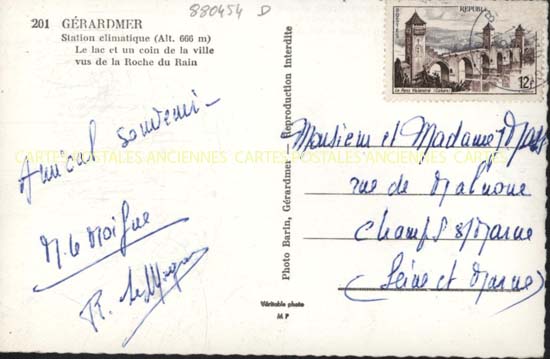 880454 D
201 GÉRARDMER
Station climatique (Alt. 666 m)
Le lac et un coin de la ville
vus de la Roche du Rain
Amical souvenir
M. le Moigne
R. le
Photo Barin, Gérardmer — Reproduction interdite
Véritable photo
M P
REPUBL
12F
Le Pont Valentré (Cahors)
Monsieur et Madame
rue de Malnoue
Champs s/Marne
(Seine et Marne)
CARTES POSTALES ANCIENNES CARTES POSTALES ANCIENNES CARTES POSTALES ANCIENNES